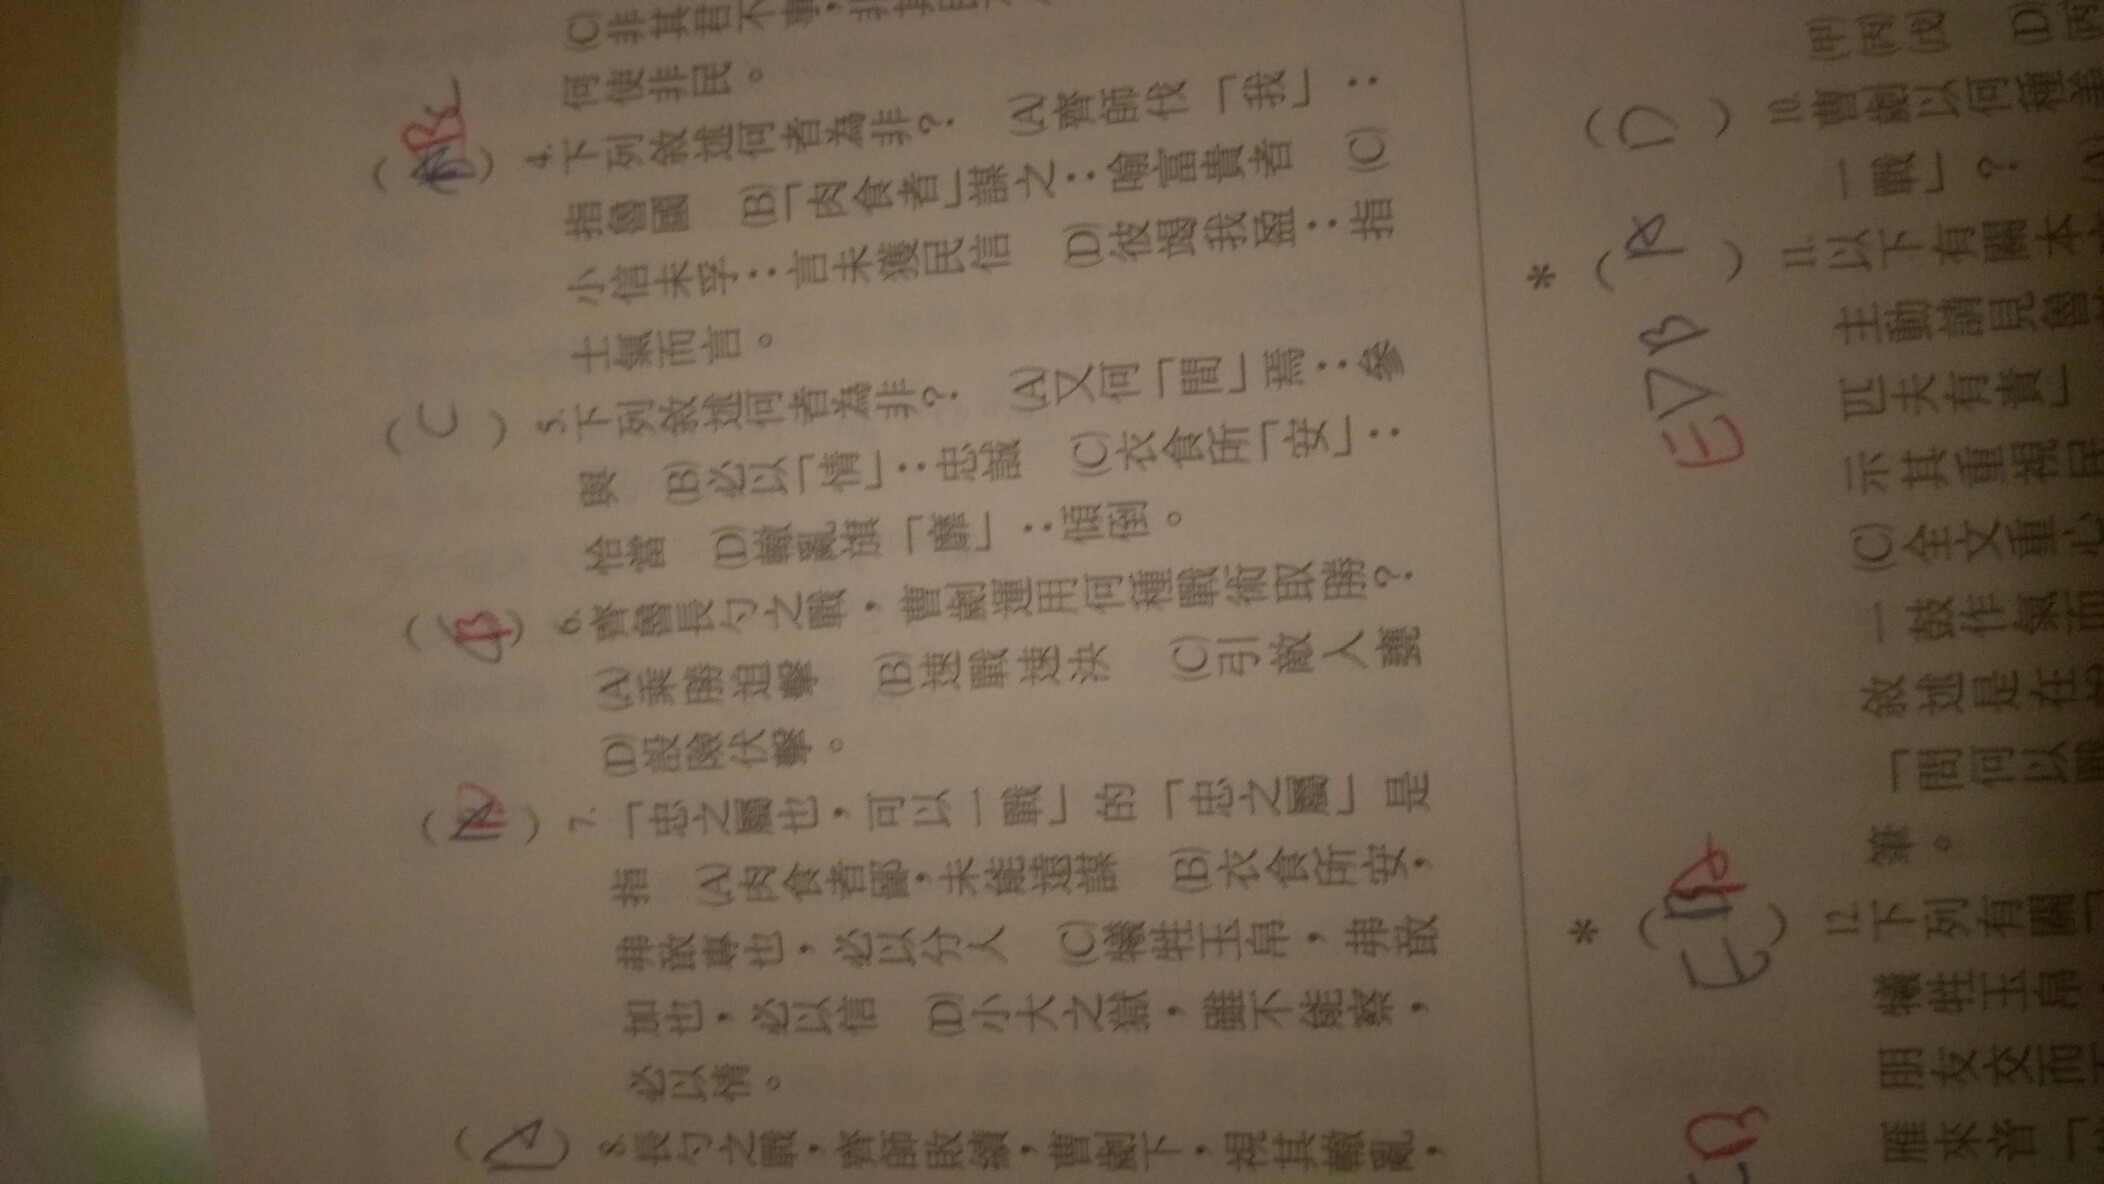 (C)非其君不事,非其
何使非民。
4.下列敘述何者為非? (A)齊師伐「我」:
指魯國 (B)「肉食者」謀之:喻富貴者 (C)
小信未孚:言未獲民信 (D)彼竭我盈:指
士氣而言。
(C) 5.下列敘述何者為非? (A)又何「間」焉:參
與 (B)必以「情」:忠誠 (C)衣食所「安」:
恰當 (D)轍亂旗「靡」:傾倒。
(B) 6.齊魯長勺之戰,曹劌運用何種戰術取勝?
(A)乘勝追擊 (B)速戰速決 (C)引敵入甕
(D)設險伏擊。
(D) 7.「忠之屬也,可以一戰」的「忠之屬」是
指 (A)肉食者鄙,未能遠謀 (B)衣食所安,
弗敢專也,必以分人 (C)犧牲玉帛,弗敢
加也,必以信 (D)小大之獄,雖不能察,
必以情。
8.長勺之戰,齊師敗績,曹劌下,視其轍亂,
甲丙戊 (D)丙
(D) 10.曹劌以何種
一戰」? (A)
* (A B E) 11.以下有關本
主動請見魯
匹夫有責」
示其重視民
(C)全文重心
一鼓作氣而
敘述是在
「問何以戰
筆。
* 12.下列有關「
犧牲玉帛
朋友交而
雁來音「